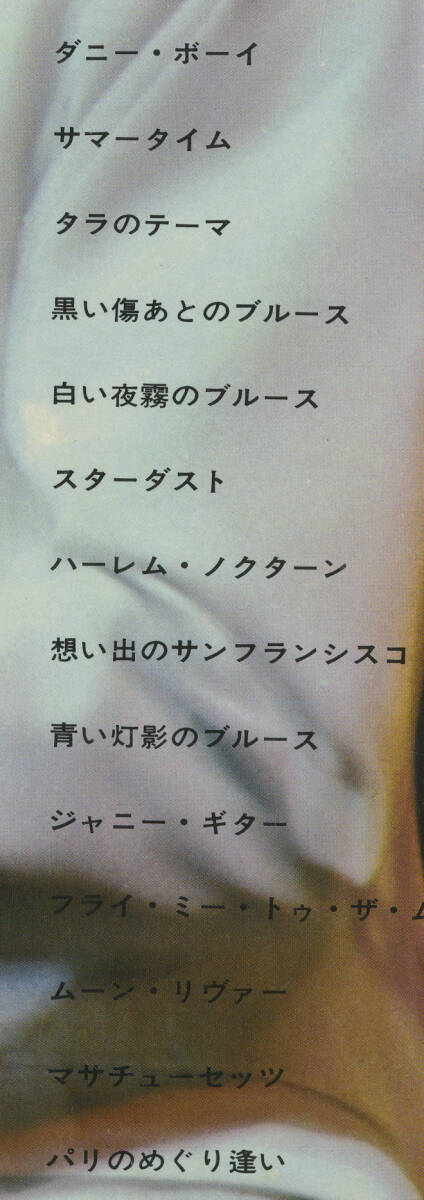 ダニー・ボーイ
サマータイム
タラのテーマ
黒い傷あとのブルース
白い夜霧のブルース
スターダスト
ハーレム・ノクターン
想い出のサンフランシスコ
青い灯影のブルース
ジャニー・ギター
フライ・ミー・トゥ・ザ・ム
ムーン・リヴァー
マサチューセッツ
パリのめぐり逢い